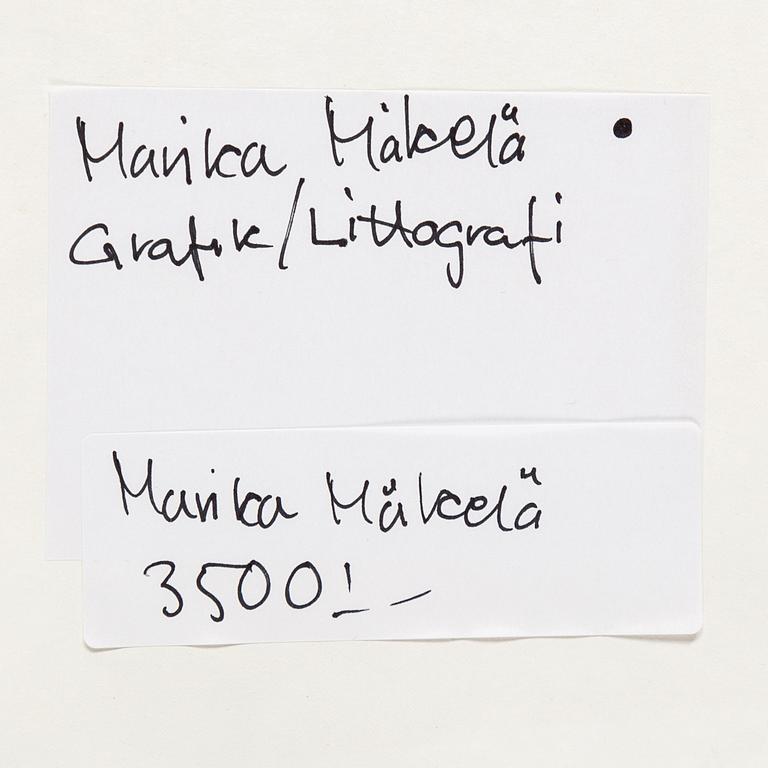 Marika Mäkelä
Grafik/Littografi
Marika Mäkelä
3500!-